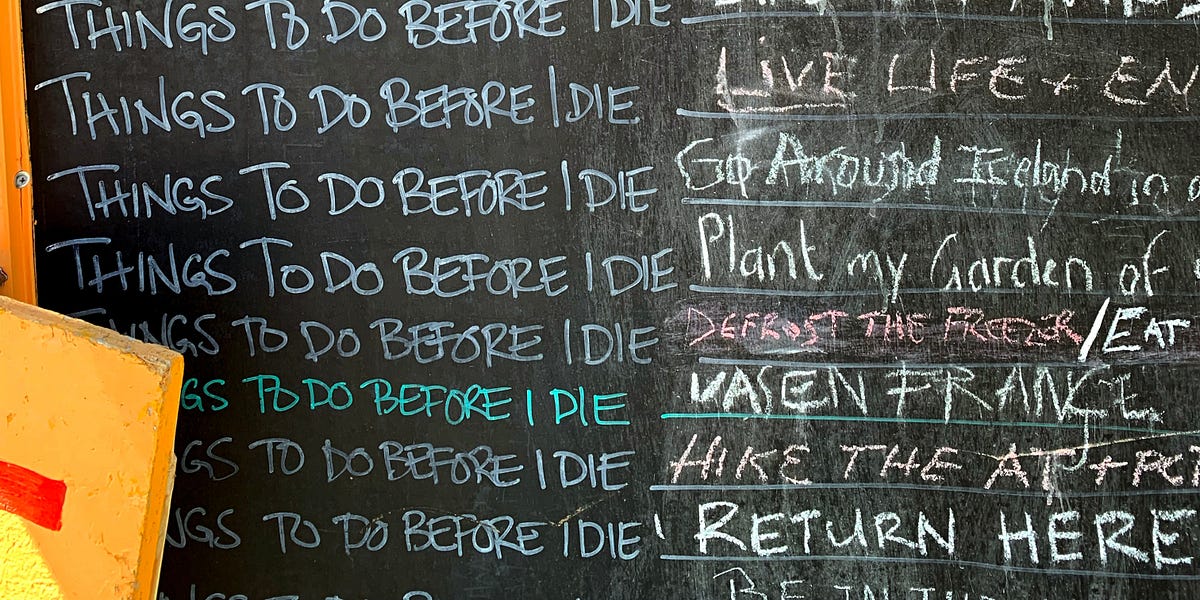 THINGS TO DO BEFORE I DIE
THINGS TO DO BEFORE I DIE LIVE LIFE + EN
THINGS TO DO BEFORE I DIE Go Around Ireland in a
THINGS TO DO BEFORE I DIE Plant my Garden of
THINGS TO DO BEFORE I DIE DEFROST THE FREEZER / EAT
GS TO DO BEFORE I DIE
GS TO DO BEFORE I DIE HIKE THE AT + PC
NGS TO DO BEFORE I DIE RETURN HERE
BE IN